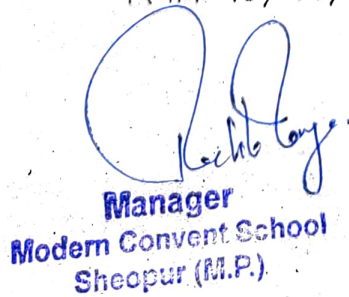 Manager
Modern Convent School
Sheopur (M.P.)